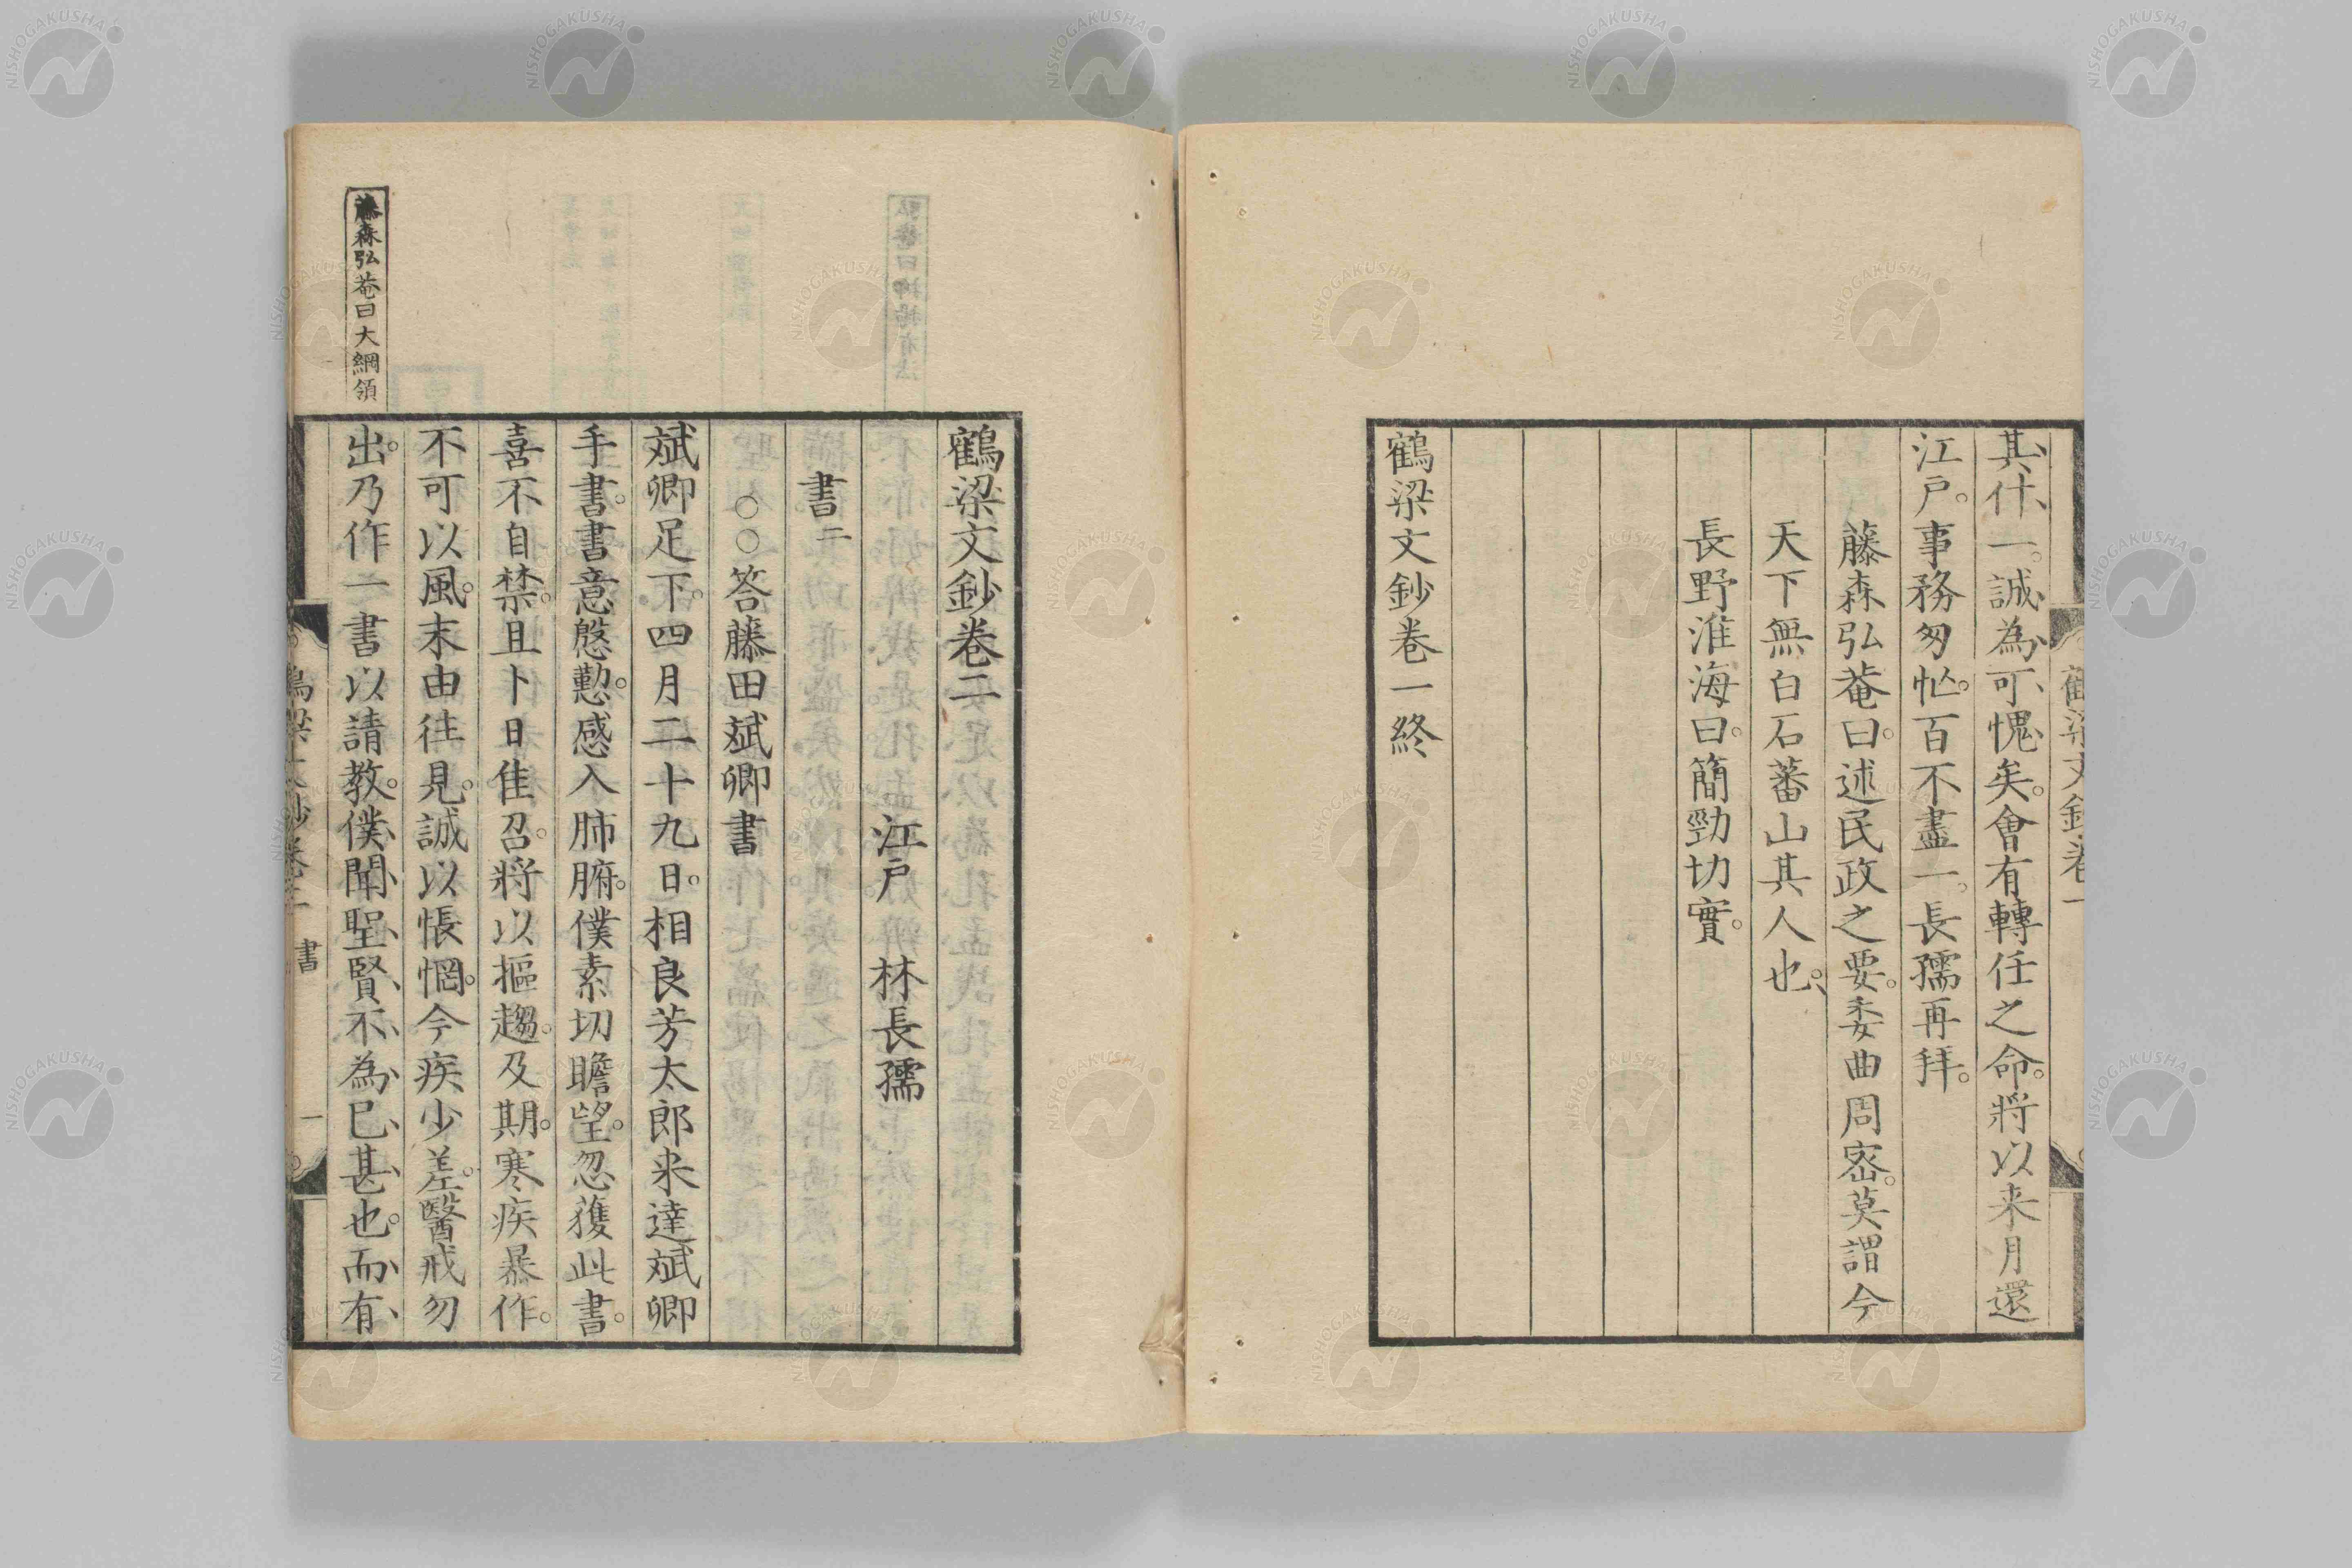 其什一。誠為可愧矣。會有轉任之命。將以来月還
江戸。事務匆忙。百不盡一。長孺再拜。
藤森弘菴曰。述民政之要。委曲周宻。莫謂今
天下無白石蕃山其人也。
長野淮海曰。簡勁切實。
鶴梁文鈔卷一終
鶴梁文鈔卷一
鶴梁文鈔卷二
江戸 林長孺
書二
○○答藤田斌卿書
斌卿足下。四月二十九日。相良芳太郎来達斌卿
手書。書意慇懃。感入肺腑。僕素切瞻望。忽獲此書。
喜不自禁。且卜日隹召。將以摳趨。及期。寒疾暴作。
不可以風。末由往見。誠以悵惘。今疾少差。醫戒勿
出。乃作一書以請教。僕聞聖賢不為已甚也。而有
藤森弘菴曰大綱領
鶴梁文鈔卷二 書 一
NISHOGAKUSHA